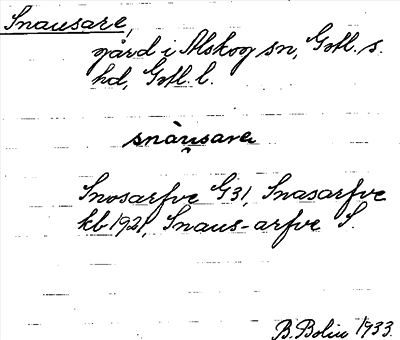 Snausare,
gård i Alskog sn, Gotl. s.
hd, Gotl. l.
snàu̯sare
Snosarfve G31, Snasarfve
kb 1921, Snaus-arfve S.
B. Bolin 1933.